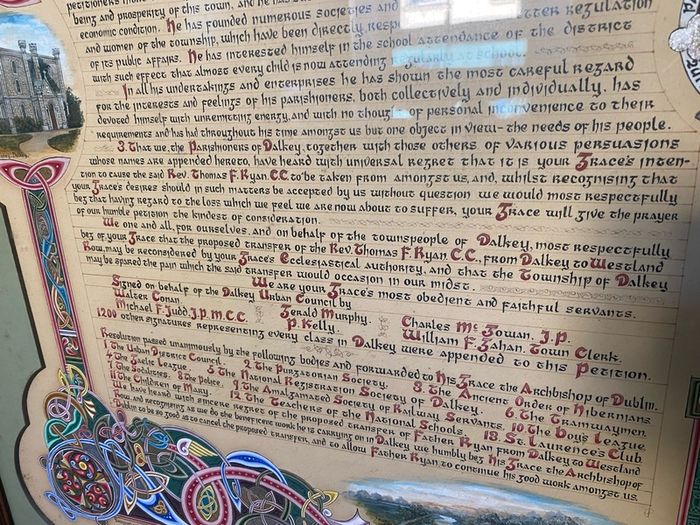 petitioners
being and prosperity of this town, and he has
economic condition. He has founded numerous societies and regulation
and women of the township, which have been directly resp
of its public affairs. He has interested himself in the school attendance of the district
with such effect that almost every child is now attending regularly at school.
In all his undertakings and enterprises he has shown the most careful regard
for the interests and feelings of his parishioners, both collectively and individually, has
devoted himself with unremitting energy, and with no thought of personal inconvenience to their
requirements and has had throughout his time amongst us but one object in view - the needs of his people.
3. That we, the Parishoners of Dalkey, together with those others of various persuasions
whose names are appended hereto, have heard with universal regret that it is your Grace's inten-
tion to cause the said Rev. Thomas F. Ryan. C.C. to be taken from amongst us, and, whilst recognising that
your Grace's desires should in such matters be accepted by us without question we would most respectfully
beg that having regard to the loss which we feel we are now about to suffer, your Grace will give the prayer
of our humble petition the kindest of consideration.
We one and all, for ourselves, and on behalf of the townspeople of Dalkey, most respectfully
beg of your Grace that the proposed transfer of the Rev. Thomas F. Ryan C.C., from Dalkey to Westland
Row, may be reconsidered by your Grace's Ecclesiastical authority, and that the Township of Dalkey
may be spared the pain which the said transfer would occasion in our midst.
We are your Grace's most obedient and faithful servants.
Signed on behalf of the Dalkey Urban Council by
Walter Conan. Gerald Murphy. Charles Mc Gowan, J.P.
Michael F. Judd. J.P. M.C.C. P. Kelly. William F. Gahan. Town Clerk.
1200 other signatures representing every class in Dalkey were appended to this Petition.
Resolution passed unanimously by the following bodies and forwarded to His Grace the Archbishop of Dublin.
1 The Urban District Council. 2 The Purgatorian Society. 3. The Ancient Order of Hibernians
4 The Gaelic League. 5 The National Registration Society of Dalkey. 6. The Tramwaymen
7 The Sodalities. 8 The Police. 9 The Amalgamated Society of Railway Servants. 10 The Boy's League
11 The Children of Mary. 12 The Teachers of the National Schools. 13. St. Laurence's Club
We have heard with sincere regret of the proposed transfer of Father Ryan from Dalkey to Westland
Row, and recognising as we do the beneficent work he is carrying on in Dalkey we humbly beg His Grace the Archbishop of
Dublin to be so good as to cancel the proposed transfer, and to allow Father Ryan to continue his good work amongst us.